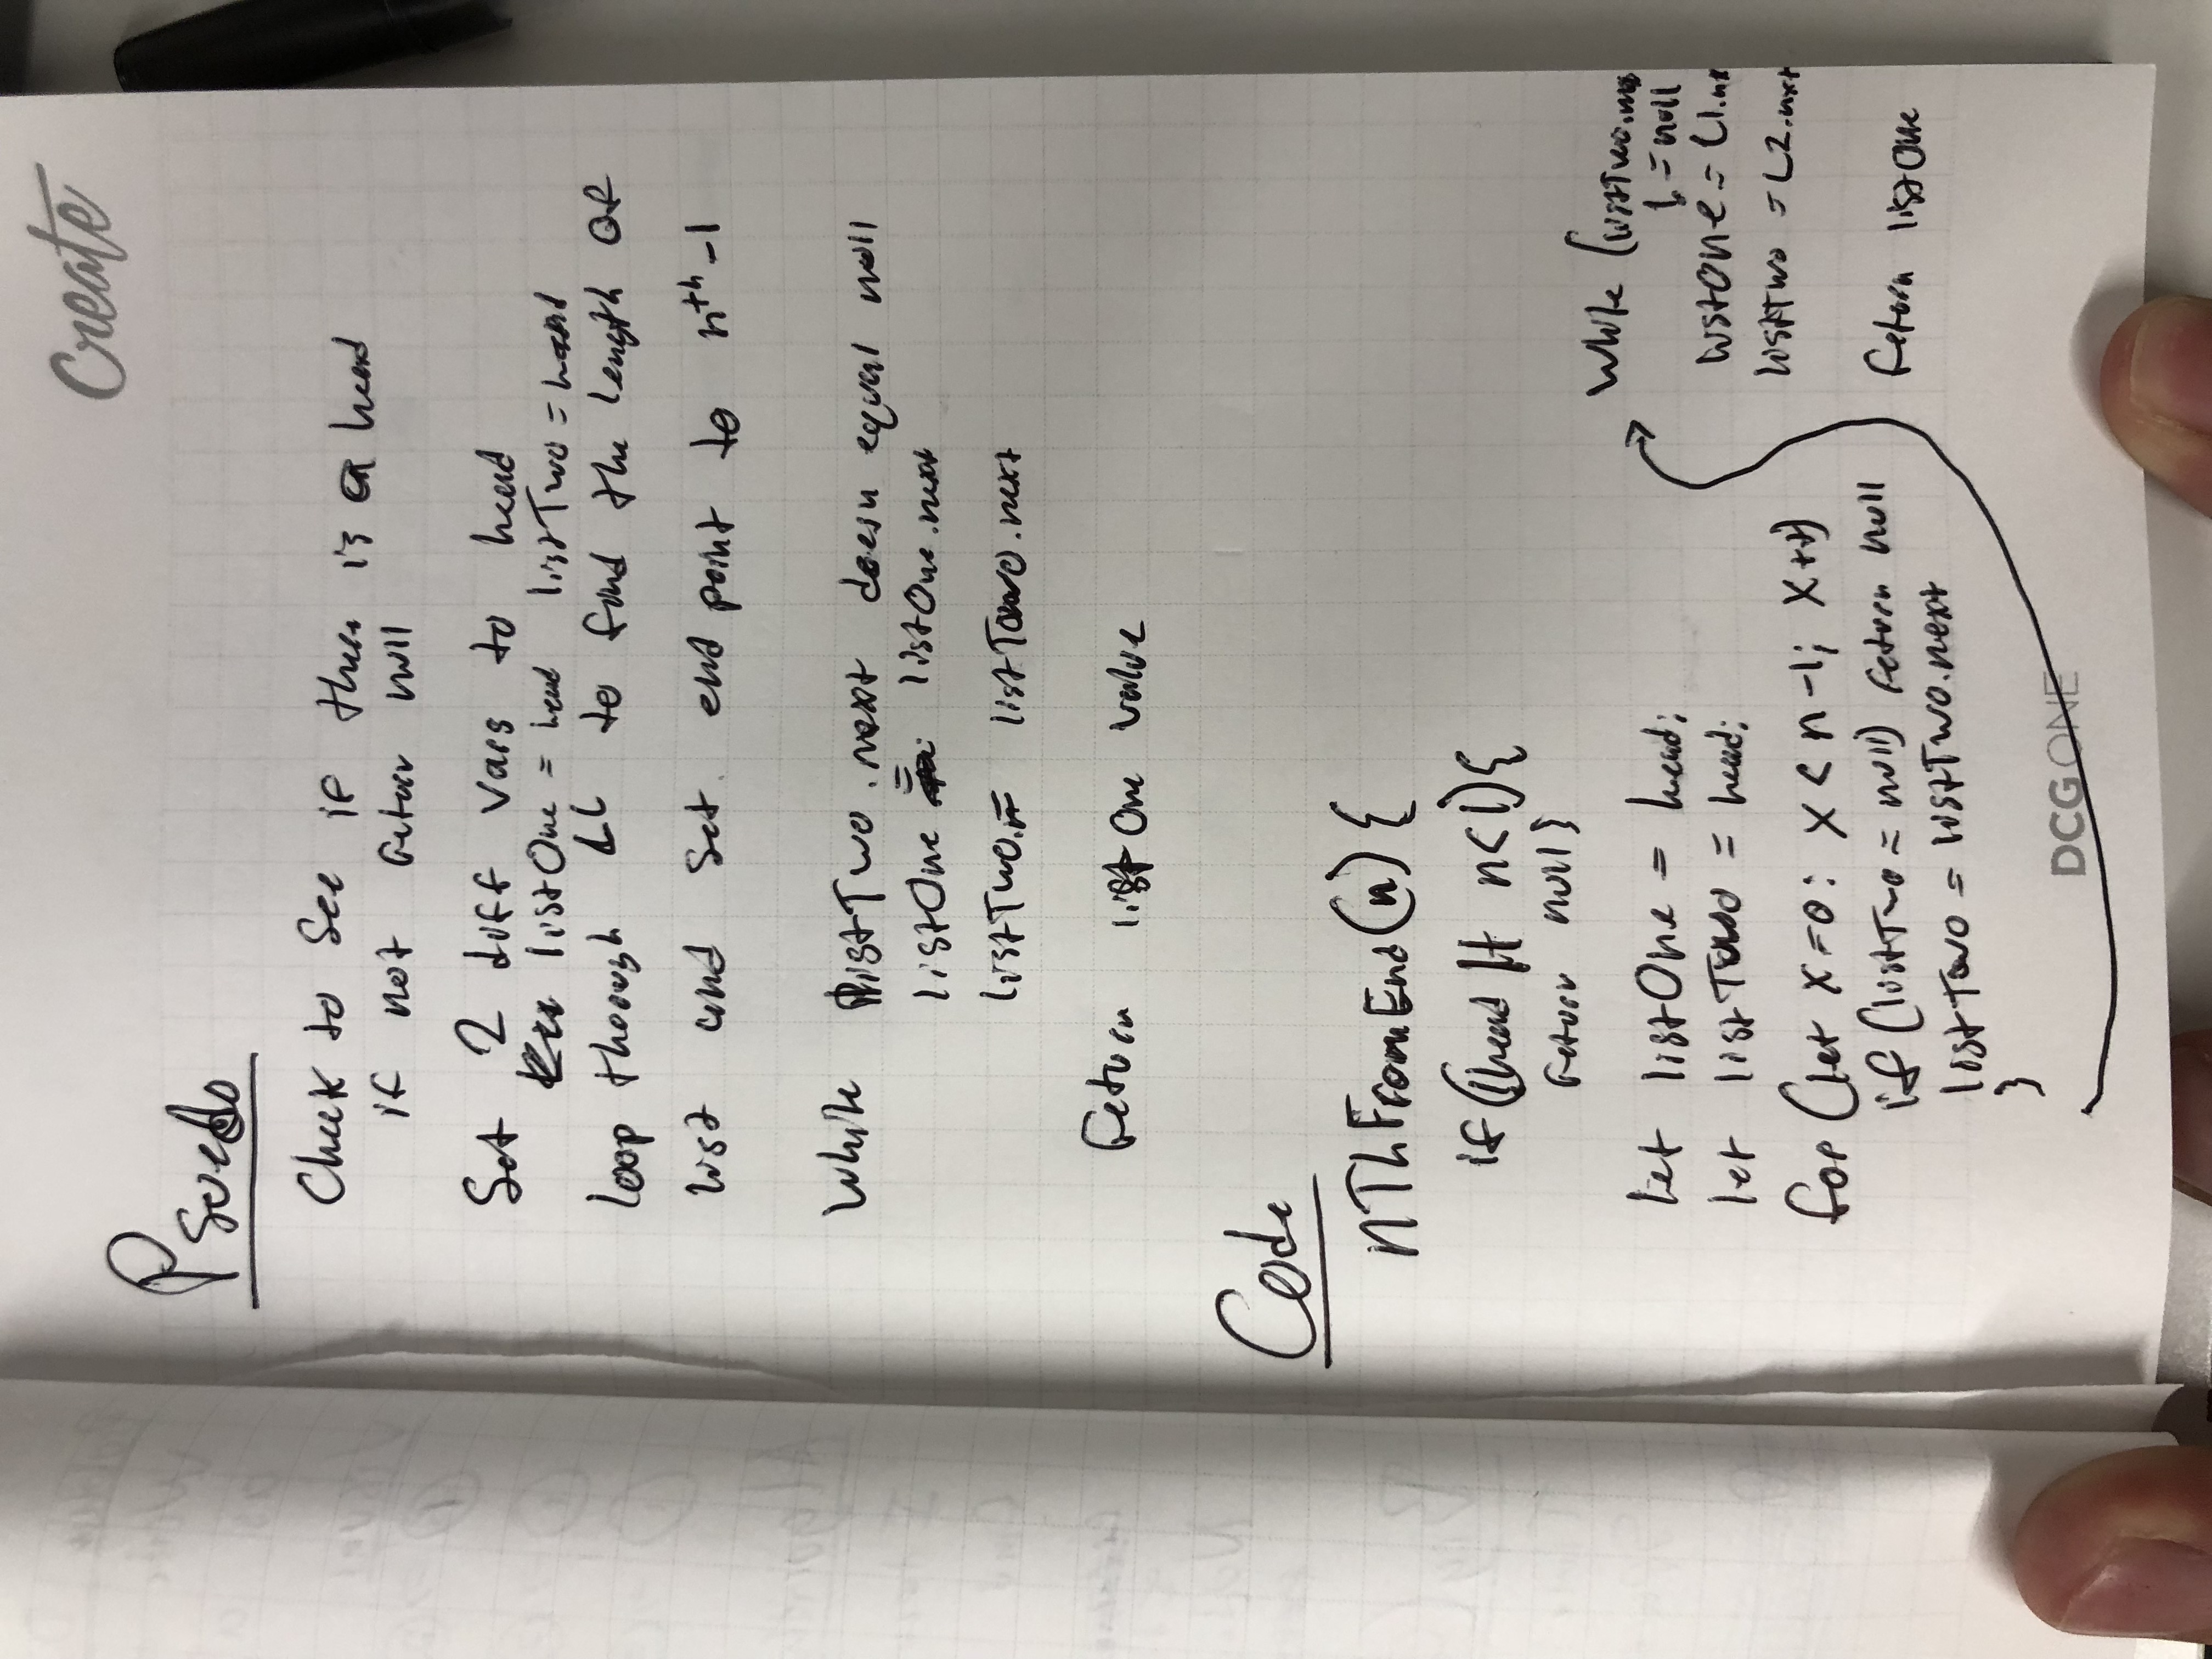 Create
Psuedo
Check to see if there is a head
if not return null
Set 2 diff vars to head
listOne = head listTwo = head
loop through LL to find the length of
list and set end point to nth-1
While listTwo.next doesn equal null
listOne = listOne.next
listTwo = listTwo.next
return listOne value
Code
nThFromEnd(n){
if(!head || n<1){
return null}
let listOne = head;
let listTwo = head;
for (let x=0: x < n-1; x++)
if (listTwo = null) return null
listTwo = listTwo.next
}
While (listTwo.nex
!=null
listOne = L1.nx
listTwo = L2.nxt
return listOne
DCG ONE